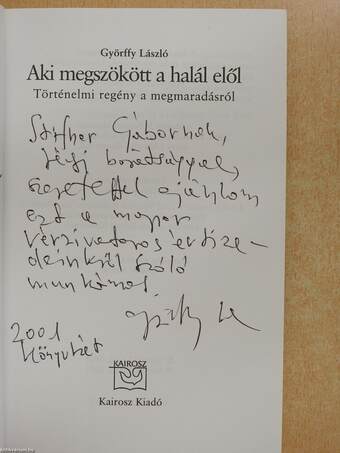 Györffy László
Aki megszökött a halál elől
Történelmi regény a megmaradásról
Gábornak,
régi barátsággal,
szeretettel ajánlom
ezt a magyar
vérzivataros évtize-
deinkről szóló
munkámat
2001
Könyvhét
KAIROSZ
Kairosz Kiadó